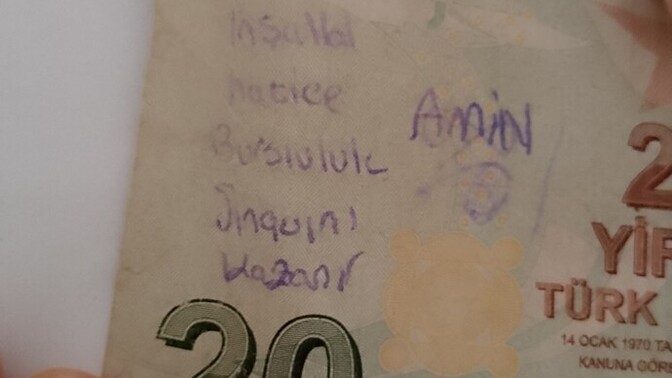 inşallah
hatice
AMİN
Bursluluk
Sınavını
kazanır
20
2
YİR
TÜRK
14 OCAK 1970 TA
KANUNA GÖRE